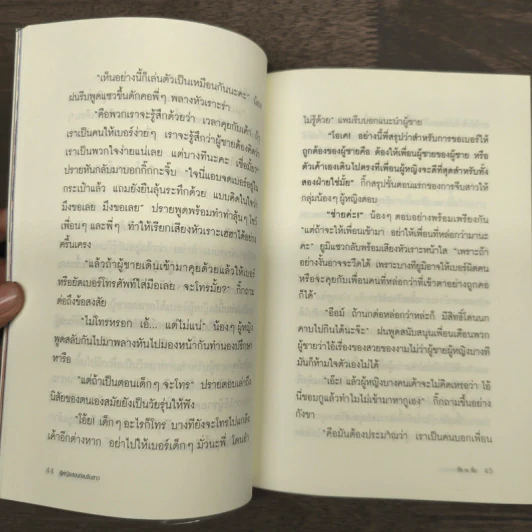 “เห็นอย่างนี้ก็เล่นตัวเป็นเหมือนกันนะคะ”
ฝนรีบพูดแซวขึ้นดักคอพี่ๆ พลางหัวเราะร่า
“คือพวกเราจะรู้สึกด้วยว่า เวลาคุยกับเค้า
เราเป็นคนให้เบอร์ง่ายๆ เราจะรู้สึกว่าผู้ชายต้องคิดว่า
เราเป็นพวกใจง่ายแน่เลย แต่บางทีนะคะ เชื่อมั้ย”
ปรายหันกลับมาบอกกิ๊กกะจั๊บ “ใจนี่แอบจดเบอร์อยู่ใน
กระเป๋าแล้ว แถมยังยืนลุ้นระทึกด้วย แบบคิดในใจว่า
มึงขอเลย มึงขอเลย” ปรายพูดพร้อมทำท่าลุ้นๆ โชว์
เพื่อนๆ และพี่ๆ ทำให้เรียกเสียงหัวเราะเฮฮาได้อย่าง
ครื้นเครง
“แล้วถ้าผู้ชายเดินเข้ามาคุยด้วยแล้วให้เบอร์
หรือยัดเบอร์โทรศัพท์ใส่มือเลย จะโทรมั้ย?” กิ๊กถาม
ต่อถึงข้อสงสัย
“ไม่โทรหรอก เอ้... แต่ไม่แน่” น้องๆ ผู้หญิง
พูดสลับกันไปมาพลางหันไปมองหน้ากันทำนองปรึกษา
หารือ
“แต่ถ้าเป็นตอนเด็กๆ จะโทร” ปรายตอบเล่าถึง
นิสัยของตนเองสมัยยังเป็นวัยรุ่นให้ฟัง
“โอ้ย! เด็กๆ อะไรก็โทร บางทียังจะโทรไปแกล้ง
เค้าอีกต่างหาก อย่าไปให้เบอร์เด็กๆ มั่วนะพี่ โดนยำ
44
ไม่รู้ด้วย” แพมรีบบอกแนะนำผู้ชาย
“โอเค! อย่างนี้พี่สรุปว่าสำหรับการขอเบอร์ให้
ถูกต้องของผู้ชายคือ ต้องให้เพื่อนผู้ชายของผู้ชาย หรือ
ตัวเค้าเองเดินไปตรงที่เพื่อนผู้หญิงจะดีที่สุดสำหรับทั้ง
สองฝ่ายใช่มั้ย” กิ๊กสรุปขั้นตอนแรกของการจีบสาวให้
กลุ่มน้องๆ ผู้หญิงตอบ
“ช่ายค่ะ!” น้องๆ ตอบอย่างพร้อมเพรียงกัน
“แต่ถ้าจะให้เพื่อนเข้ามา อย่าให้เพื่อนที่หล่อกว่ามานะ
คะ” ยูมิแซวกลับพร้อมเสียงหัวเราะหน้าใส “เพราะถ้า
อย่างงั้นอาจจะวืดได้ เพราะบางทียูมิอาจให้เบอร์ผิดคน
หรือจะคุยกับเพื่อนคนที่หล่อกว่าที่เข้าตาอย่างถูกคอ
ก็ได้”
“อืมม์ ถ้านกต่อหล่อกว่าหล่ะก็ มีสิทธิ์โดนนก
คาบไปกินได้นะจ๊ะ” ฝนพูดสนับสนุนเพื่อนเตือนพวก
ผู้ชายว่าไอ้เรื่องของสวยของงามไม่ว่าผู้ชายผู้หญิงบางที
มันก็ห้ามใจตัวเองไม่ได้
“เอ๊ะ! แล้วผู้หญิงบางคนเค้าจะไม่คิดเหรอว่า ไอ้
นี่ชอบกูแล้วทำไมไม่เข้ามาหากูเอง” กิ๊กถามขึ้นอย่าง
กังขา
“คือมันต้องประมาณว่า เราเป็นคนบอกเพื่อน
45